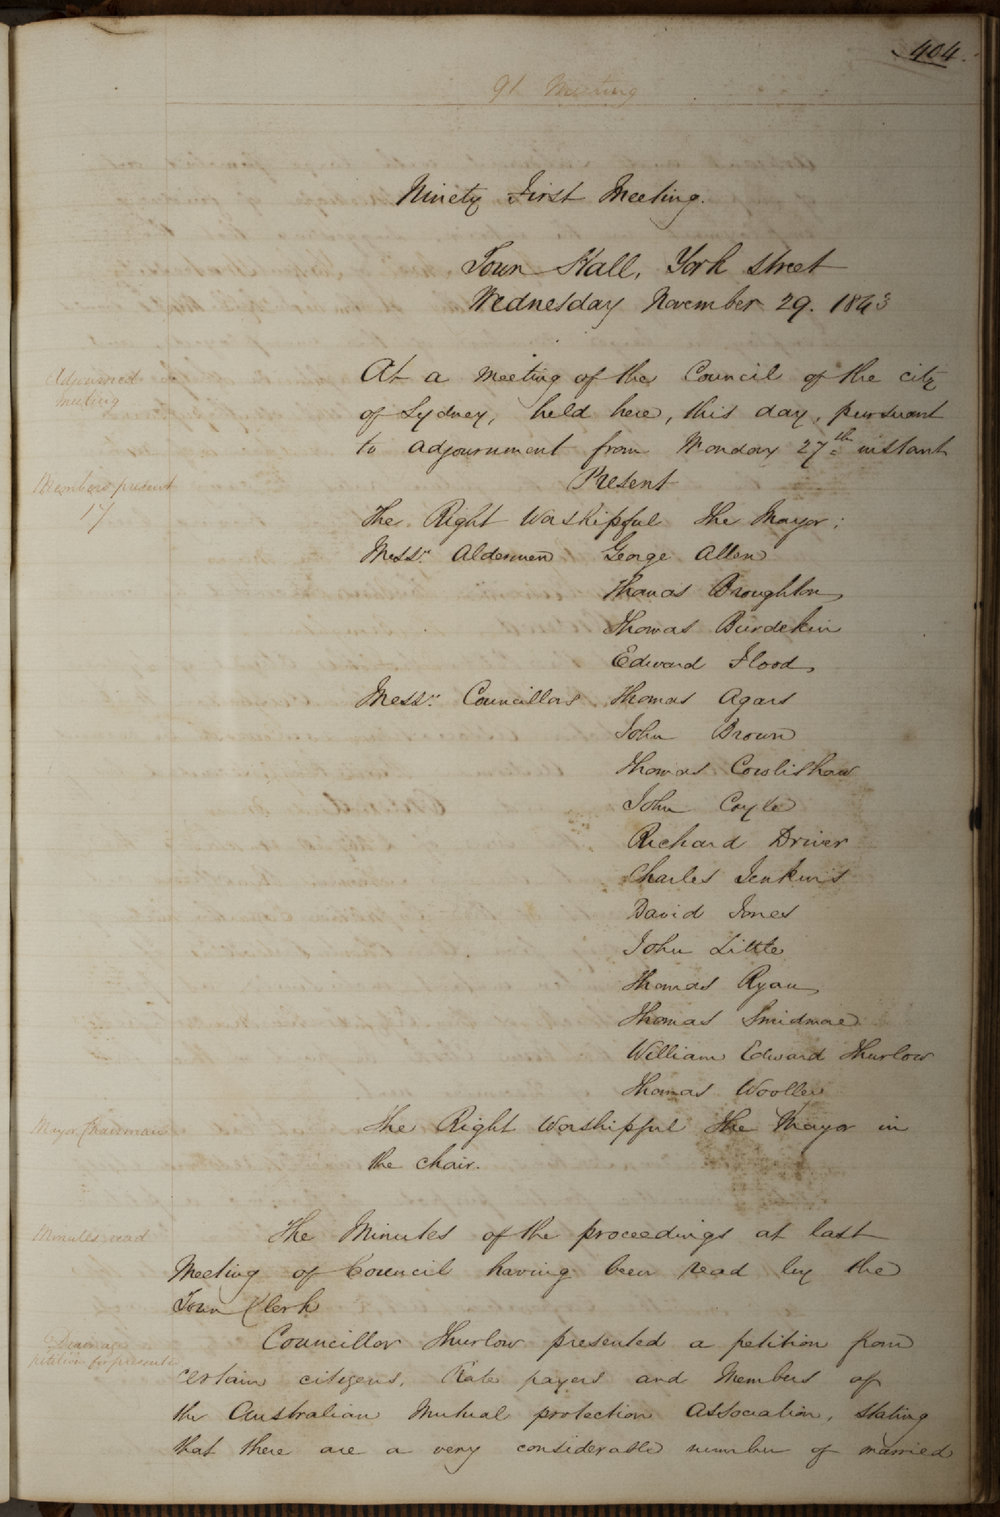 404.
91 Meeting
Ninety First Meeting.
Town Hall, York Street
Wednesday November 29. 1843
Adjourned
meeting
At a Meeting of the Council of the city
of Sydney, held here, this day, pursuant
to adjournment from Monday 27th instant
Members present
17
Present
The Right Worshipful The Mayor;
Messrs. Aldermen George Allen
Thomas Broughton
Thomas Burdekin
Edward Flood,
Messrs. Councillors Thomas Agars
John Brown
Thomas Cowlishaw
John Coyle
Richard Driver
Charles Jenkins
David Jones
John Little
Thomas Ryan
Thomas Smidmore
William Edward Thurlow
Thomas Woolley
Mayor Chairman
The Right Worshipful The Mayor in
the chair.
Minutes read
The Minutes of the proceedings at last
Meeting of Council having been read by the
Town Clerk
Councillor Thurlow presented a petition from
petition for
certain citizens, Rate payers and Members of
the Australian Mutual protection Association, stating
that there are a very considerable number of married